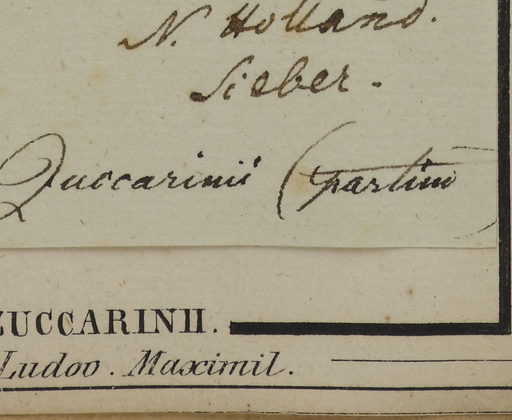 N. Holland.
Sieber.
Zuccarinii (partim
ZUCCARINII.
Ludov. Maximil.